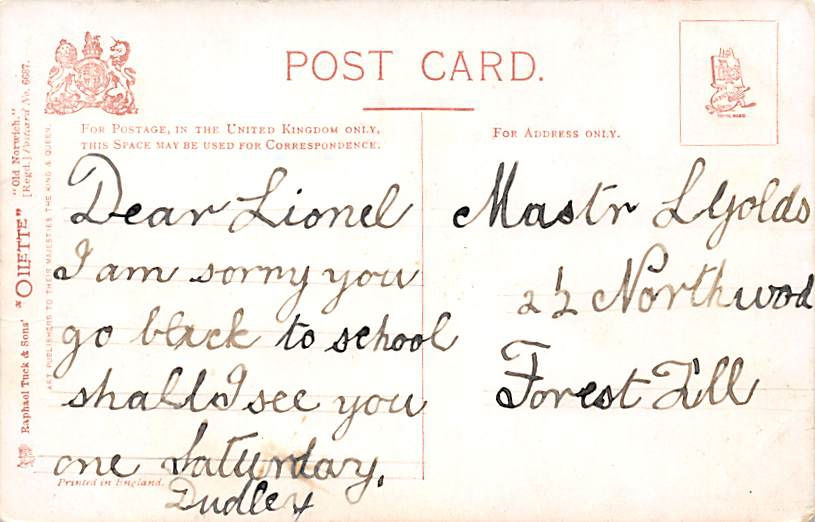 POST CARD.
FOR POSTAGE, IN THE UNITED KINGDOM ONLY,
THIS SPACE MAY BE USED FOR CORRESPONDENCE.
FOR ADDRESS ONLY.
Dear Lionel
I am sorry you
go black to school
shall I see you
one Saturday.
Dudley
Mastr L Golds
22 Northwod
Forest Hill
Printed in England.
Raphael Tuck & Sons' "OILETTE" "Old Norwich."
[Regd.] Postcard No. 6687.
ART PUBLISHERS TO THEIR MAJESTIES THE KING & QUEEN.